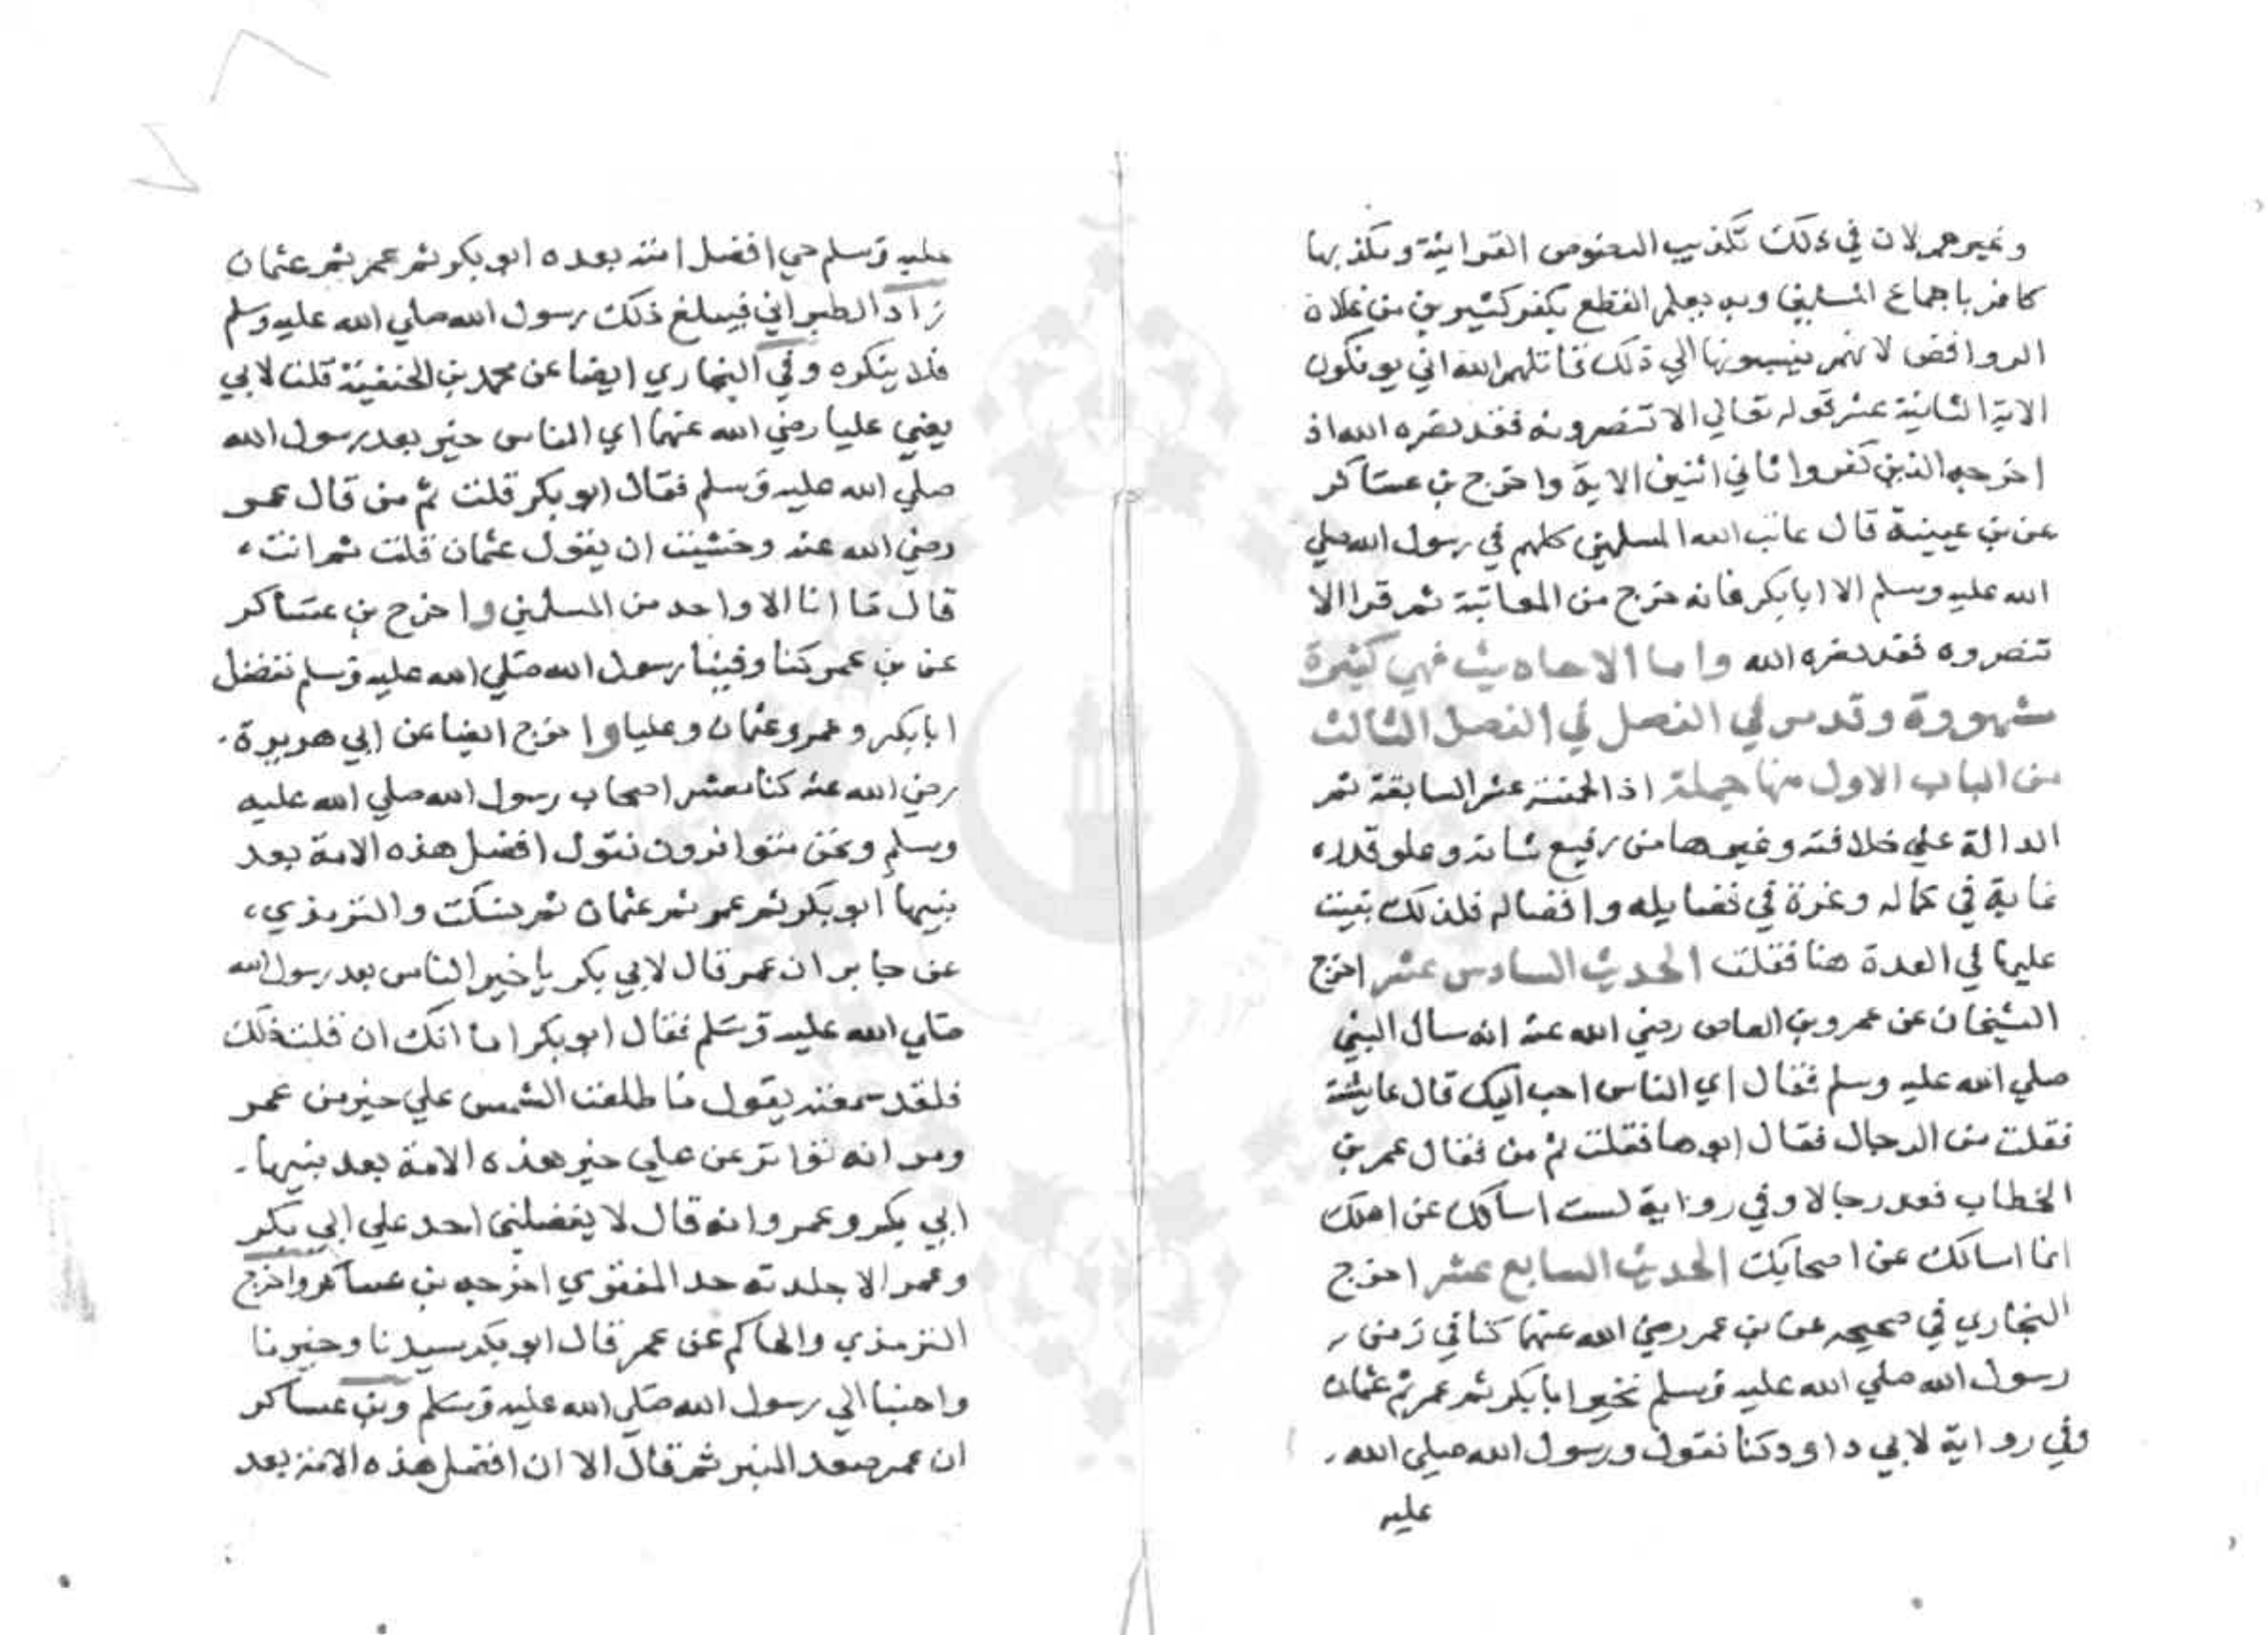 وغيرهم لان في ذلك تكذيب النصوص القرانية ومكذبها
كافر باجماع المسلمين وبه يعلم القطع بكفر كثيرين من غلاة
الروافض لانهم ينسبونها الي ذلك قاتلهم الله اني يوفكون
الاية الثانية عشر قوله تعالي الا تنصرونه فقد نصره الله اذ
اخرجه الذين كفروا ثاني اثنين الاية واخرج بن عساكر
عن بن عيينة قال عاتب الله المسلمين كلهم في رسول الله صلي
الله عليه وسلم الا ابابكر فانه خرج من المعاتبة ثم قرا الا
تنصروه فقد نصره الله واما الاحاديث فهي كثيرة
مشهورة وقد مر في الفصل في الفصل الثالث
من الباب الاول منها جملة اذ الخمسة عشر السابقة ثم
الدالة علي خلافته وغيرها من رفيع شانه وعلو قدره
غاية في كماله وغرة في فضايله وافضاله فلذلك بنيت
عليها في العدة هنا فقلت الحديث السادس عشر اخرج
الشيخان عن عمرو بن العاص رضي الله عنه انه سال النبي
صلي الله عليه وسلم فقال اي الناس احب اليك قال عايشة
فقلت من الرجال فقال ابوها فقلت ثم من فقال عمر بن
الخطاب فعد رجالا وفي رواية لست اسالك عن اهلك
انما اسالك عن اصحابك الحديث السابع عشر اخرج
البخاري في صحيحه عن بن عمر رضي الله عنهما كنا في زمن
رسول الله صلي الله عليه وسلم نخير ابابكر ثم عمر ثم عثمان
وفي رواية لابي داود كنا نقول ورسول الله صلي الله
عليه
عليه وسلم حي افضل امته بعده ابو بكر ثم عمر ثم عثمان
زاد الطبراني فيبلغ ذلك رسول الله صلي الله عليه وسلم
فلا ينكره وفي البخاري ايضا عن محمد بن الحنفية قلت لابي
يعني عليا رضي الله عنهما اي الناس خير بعد رسول الله
صلي الله عليه وسلم فقال ابو بكر قلت ثم من قال عمر
رضي الله عنه وخشيت ان يقول عثمان قلت ثم انت
قال ما انا الا واحد من المسلمين واخرج بن عساكر
عن بن عمر كنا وفينا رسول الله صلي الله عليه وسلم نفضل
ابابكر وعمر وعثمان وعليا واخرج ايضا عن ابي هريرة
رضي الله عنه كنا معشر اصحاب رسول الله صلي الله عليه
وسلم ونحن متوافرون نقول افضل هذه الامة بعد
نبيها ابو بكر ثم عمر ثم عثمان ثم نسكت والترمذي
عن جابر ان عمر قال لابي بكر يا خير الناس بعد رسول الله
صلي الله عليه وسلم فقال ابو بكر اما انك ان قلت ذلك
فلقد سمعته يقول ما طلعت الشمس علي خير من عمر
ومر انه تواتر عن علي خير هذه الامة بعد نبيها
ابي بكر وعمر وانه قال لا يفضلني احد علي ابي بكر
وعمر الا جلدته حد المفتري اخرجه بن عساكر واخرج
الترمذي والحاكم عن عمر قال ابو بكر سيدنا وخيرنا
واحبنا الي رسول الله صلي الله عليه وسلم وبن عساكر
ان عمر صعد المنبر ثم قال الا ان افضل هذه الامة بعد